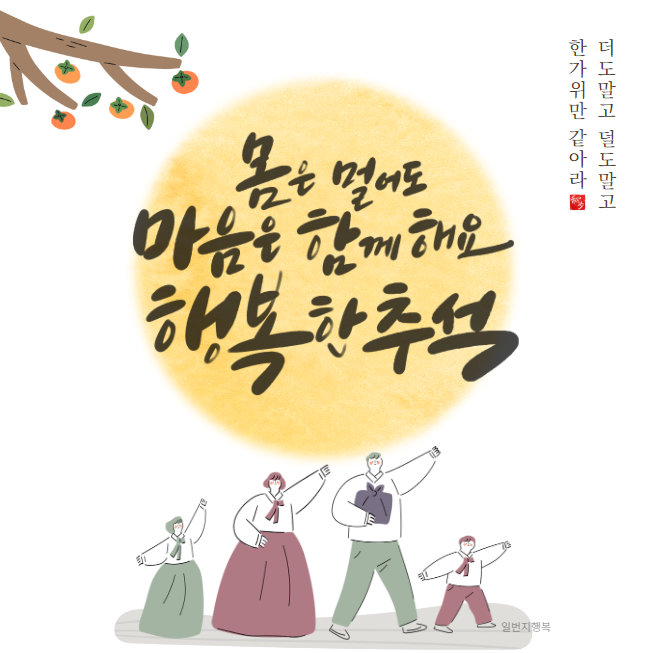 더도말고 덜도말고
한가위만 같아라
몸은 멀어도
마음은 함께 해요
행복한 추석
일번지행복